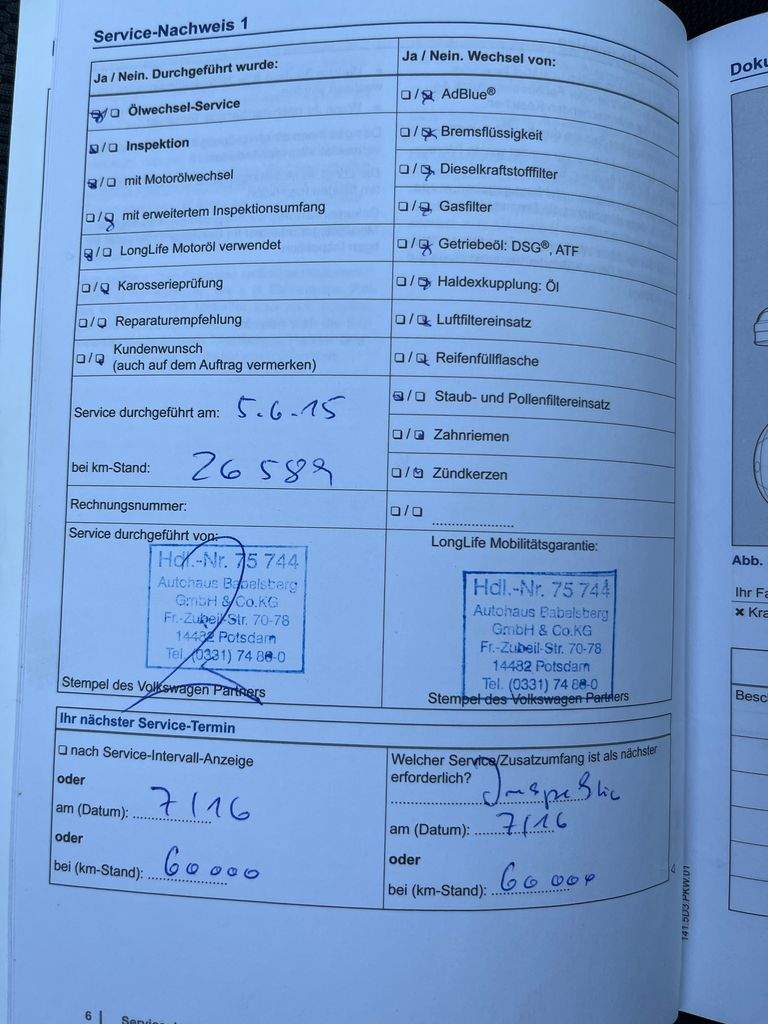 Service-Nachweis 1
Ja / Nein. Durchgeführt wurde:
☒/☐ Ölwechsel-Service
☒/☐ Inspektion
☒/☐ mit Motorölwechsel
☐/☒ mit erweitertem Inspektionsumfang
☒/☐ LongLife Motoröl verwendet
☐/☒ Karosserieprüfung
☐/☒ Reparaturempfehlung
☐/☒ Kundenwunsch
(auch auf dem Auftrag vermerken)
Service durchgeführt am: 5.6.15
bei km-Stand: 26 589
Rechnungsnummer:
Service durchgeführt von:
Hdl.-Nr. 75 744
Autohaus Babelsberg
GmbH & Co.KG
Fr.-Zubeil-Str. 70-78
14482 Potsdam
Tel. (0331) 74 88-0
Stempel des Volkswagen Partners
Ja / Nein. Wechsel von:
☐/☒ AdBlue®
☐/☒ Bremsflüssigkeit
☐/☒ Dieselkraftstofffilter
☐/☒ Gasfilter
☐/☒ Getriebeöl: DSG®, ATF
☐/☒ Haldexkupplung: Öl
☐/☒ Luftfiltereinsatz
☐/☒ Reifenfüllflasche
☒/☐ Staub- und Pollenfiltereinsatz
☐/☒ Zahnriemen
☐/☒ Zündkerzen
☐/☐
LongLife Mobilitätsgarantie:
Hdl.-Nr. 75 744
Autohaus Babelsberg
GmbH & Co.KG
Fr.-Zubeil-Str. 70-78
14482 Potsdam
Tel. (0331) 74 88-0
Stempel des Volkswagen Partners
Ihr nächster Service-Termin
☐ nach Service-Intervall-Anzeige
oder
am (Datum): 7/16
oder
bei (km-Stand): 60 000
Welcher Service/Zusatzumfang ist als nächster
erforderlich?
Inspektion
am (Datum): 7/16
oder
bei (km-Stand): 60 000
141.5D3.PKW.01
6 | Service-
Doku
Abb.
Ihr Fa
× Kra
Besch